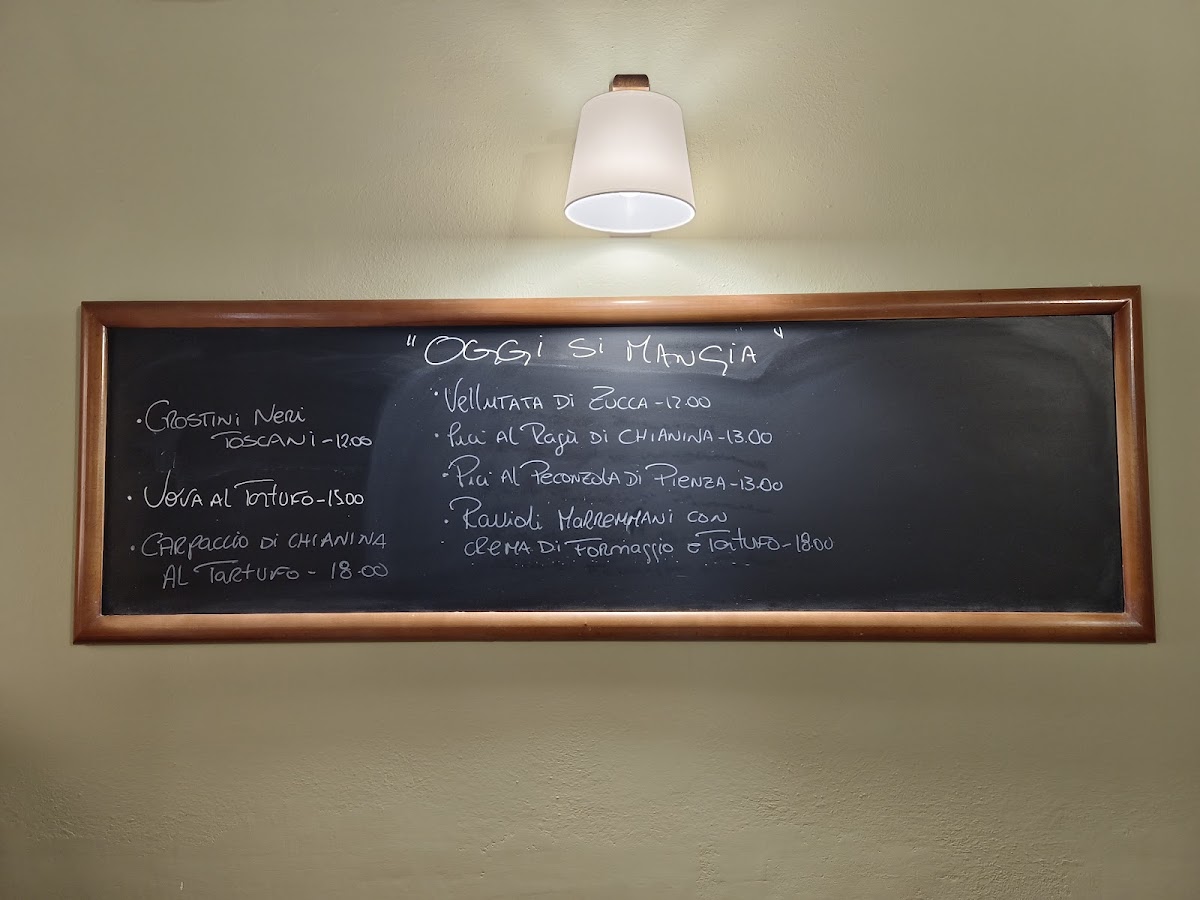 "OGGi Si MANGiA"
· CROSTiNi NERi
TOSCANi - 12.00
· UOVA AL TARTUFO - 15.00
· CARPACCIO DI CHIANINA
AL TARTUFO - 18.00
· VELLUTATA DI ZUCCA - 12.00
· Pici AL Ragù DI CHIANINA - 13.00
· Pici AL PECORZOLA DI PIENZA - 13.00
· Ravioli MARREMMANI CON
CREMA DI FORMAGGIO E TARTUFO - 18.00